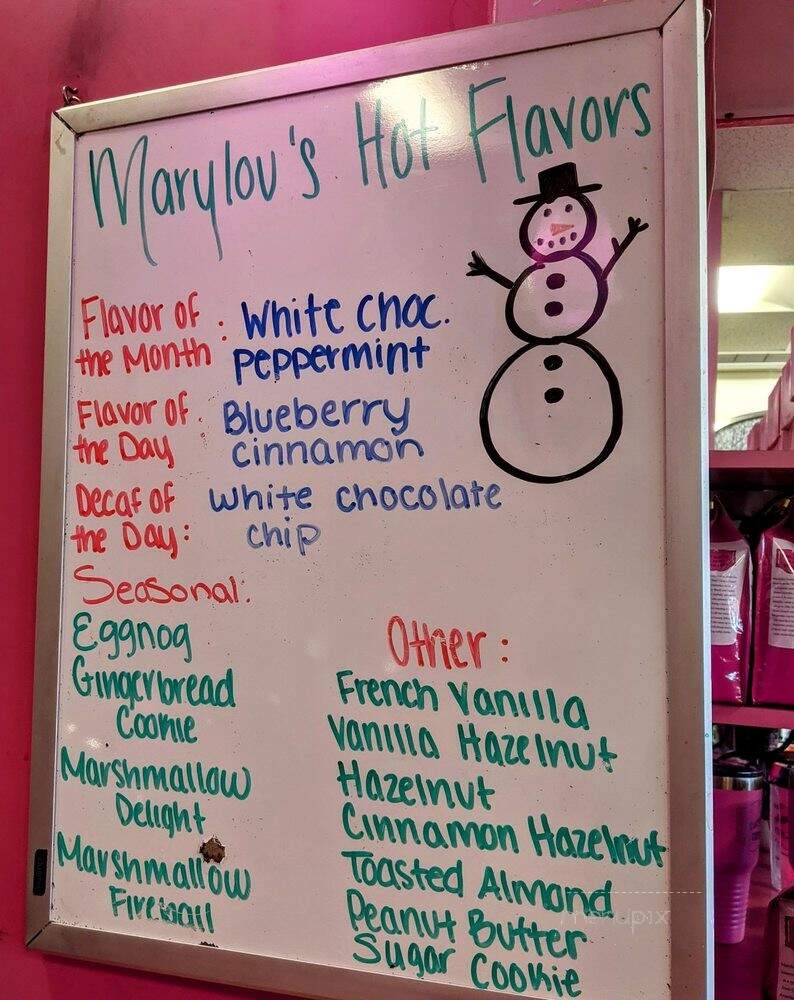 Marylou's Hot Flavors
Flavor of the Month : White Choc. peppermint
Flavor of the Day : Blueberry cinnamon
Decaf of the Day: white chocolate chip
Seasonal:
Eggnog
Gingerbread
Cookie
Marshmallow
Delight
Marshmallow
Fireball
Other:
French Vanilla
Vanilla Hazelnut
Hazelnut
Cinnamon Hazelnut
Toasted Almond
Peanut Butter
Sugar Cookie
menupix